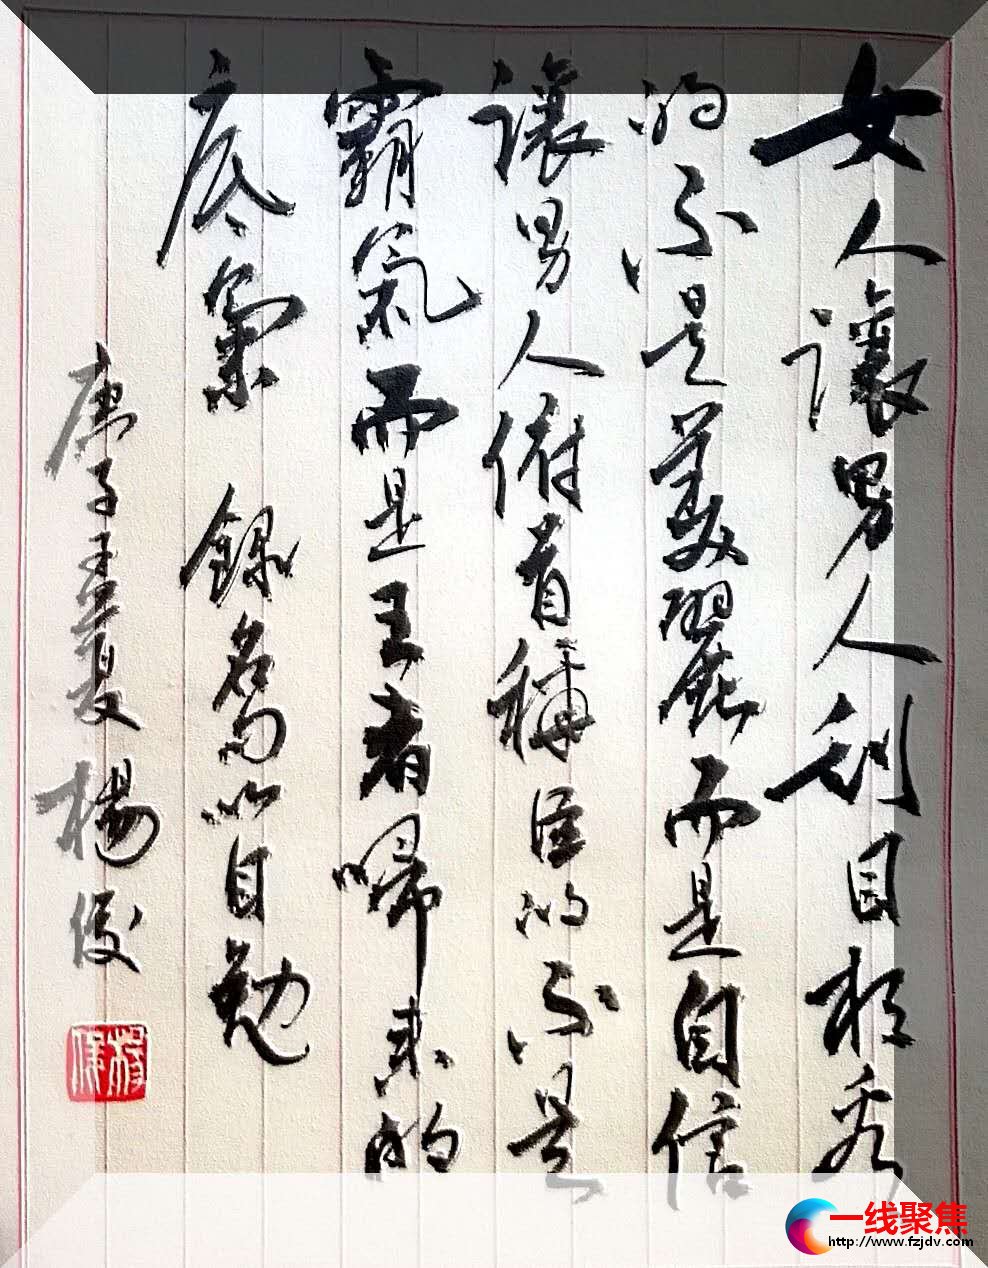 女人讓男人刮目相看
的不是美麗而是自信
讓男人俯首稱臣的不是
霸氣而是王者歸來的
底氣 錄名句以自勉
庚子孟夏 楊俊
楊俊
一线聚焦
http://www.fzjdv.com